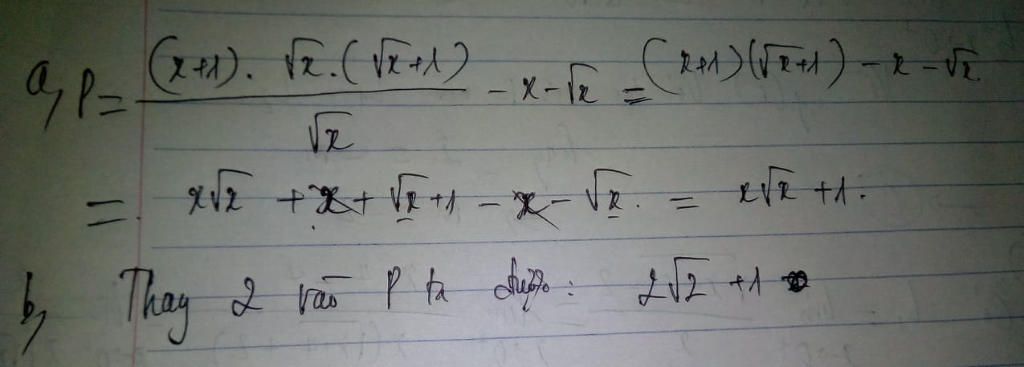 a, P = \frac{(x+1) . √x . (√x+1)}{√x} - x - √x = (x+1)(√x+1) - x - √x
= x√x + x + √x + 1 - x - √x . = x√x + 1 .
b, Thay 2 vào P ta được : 2√2 + 1